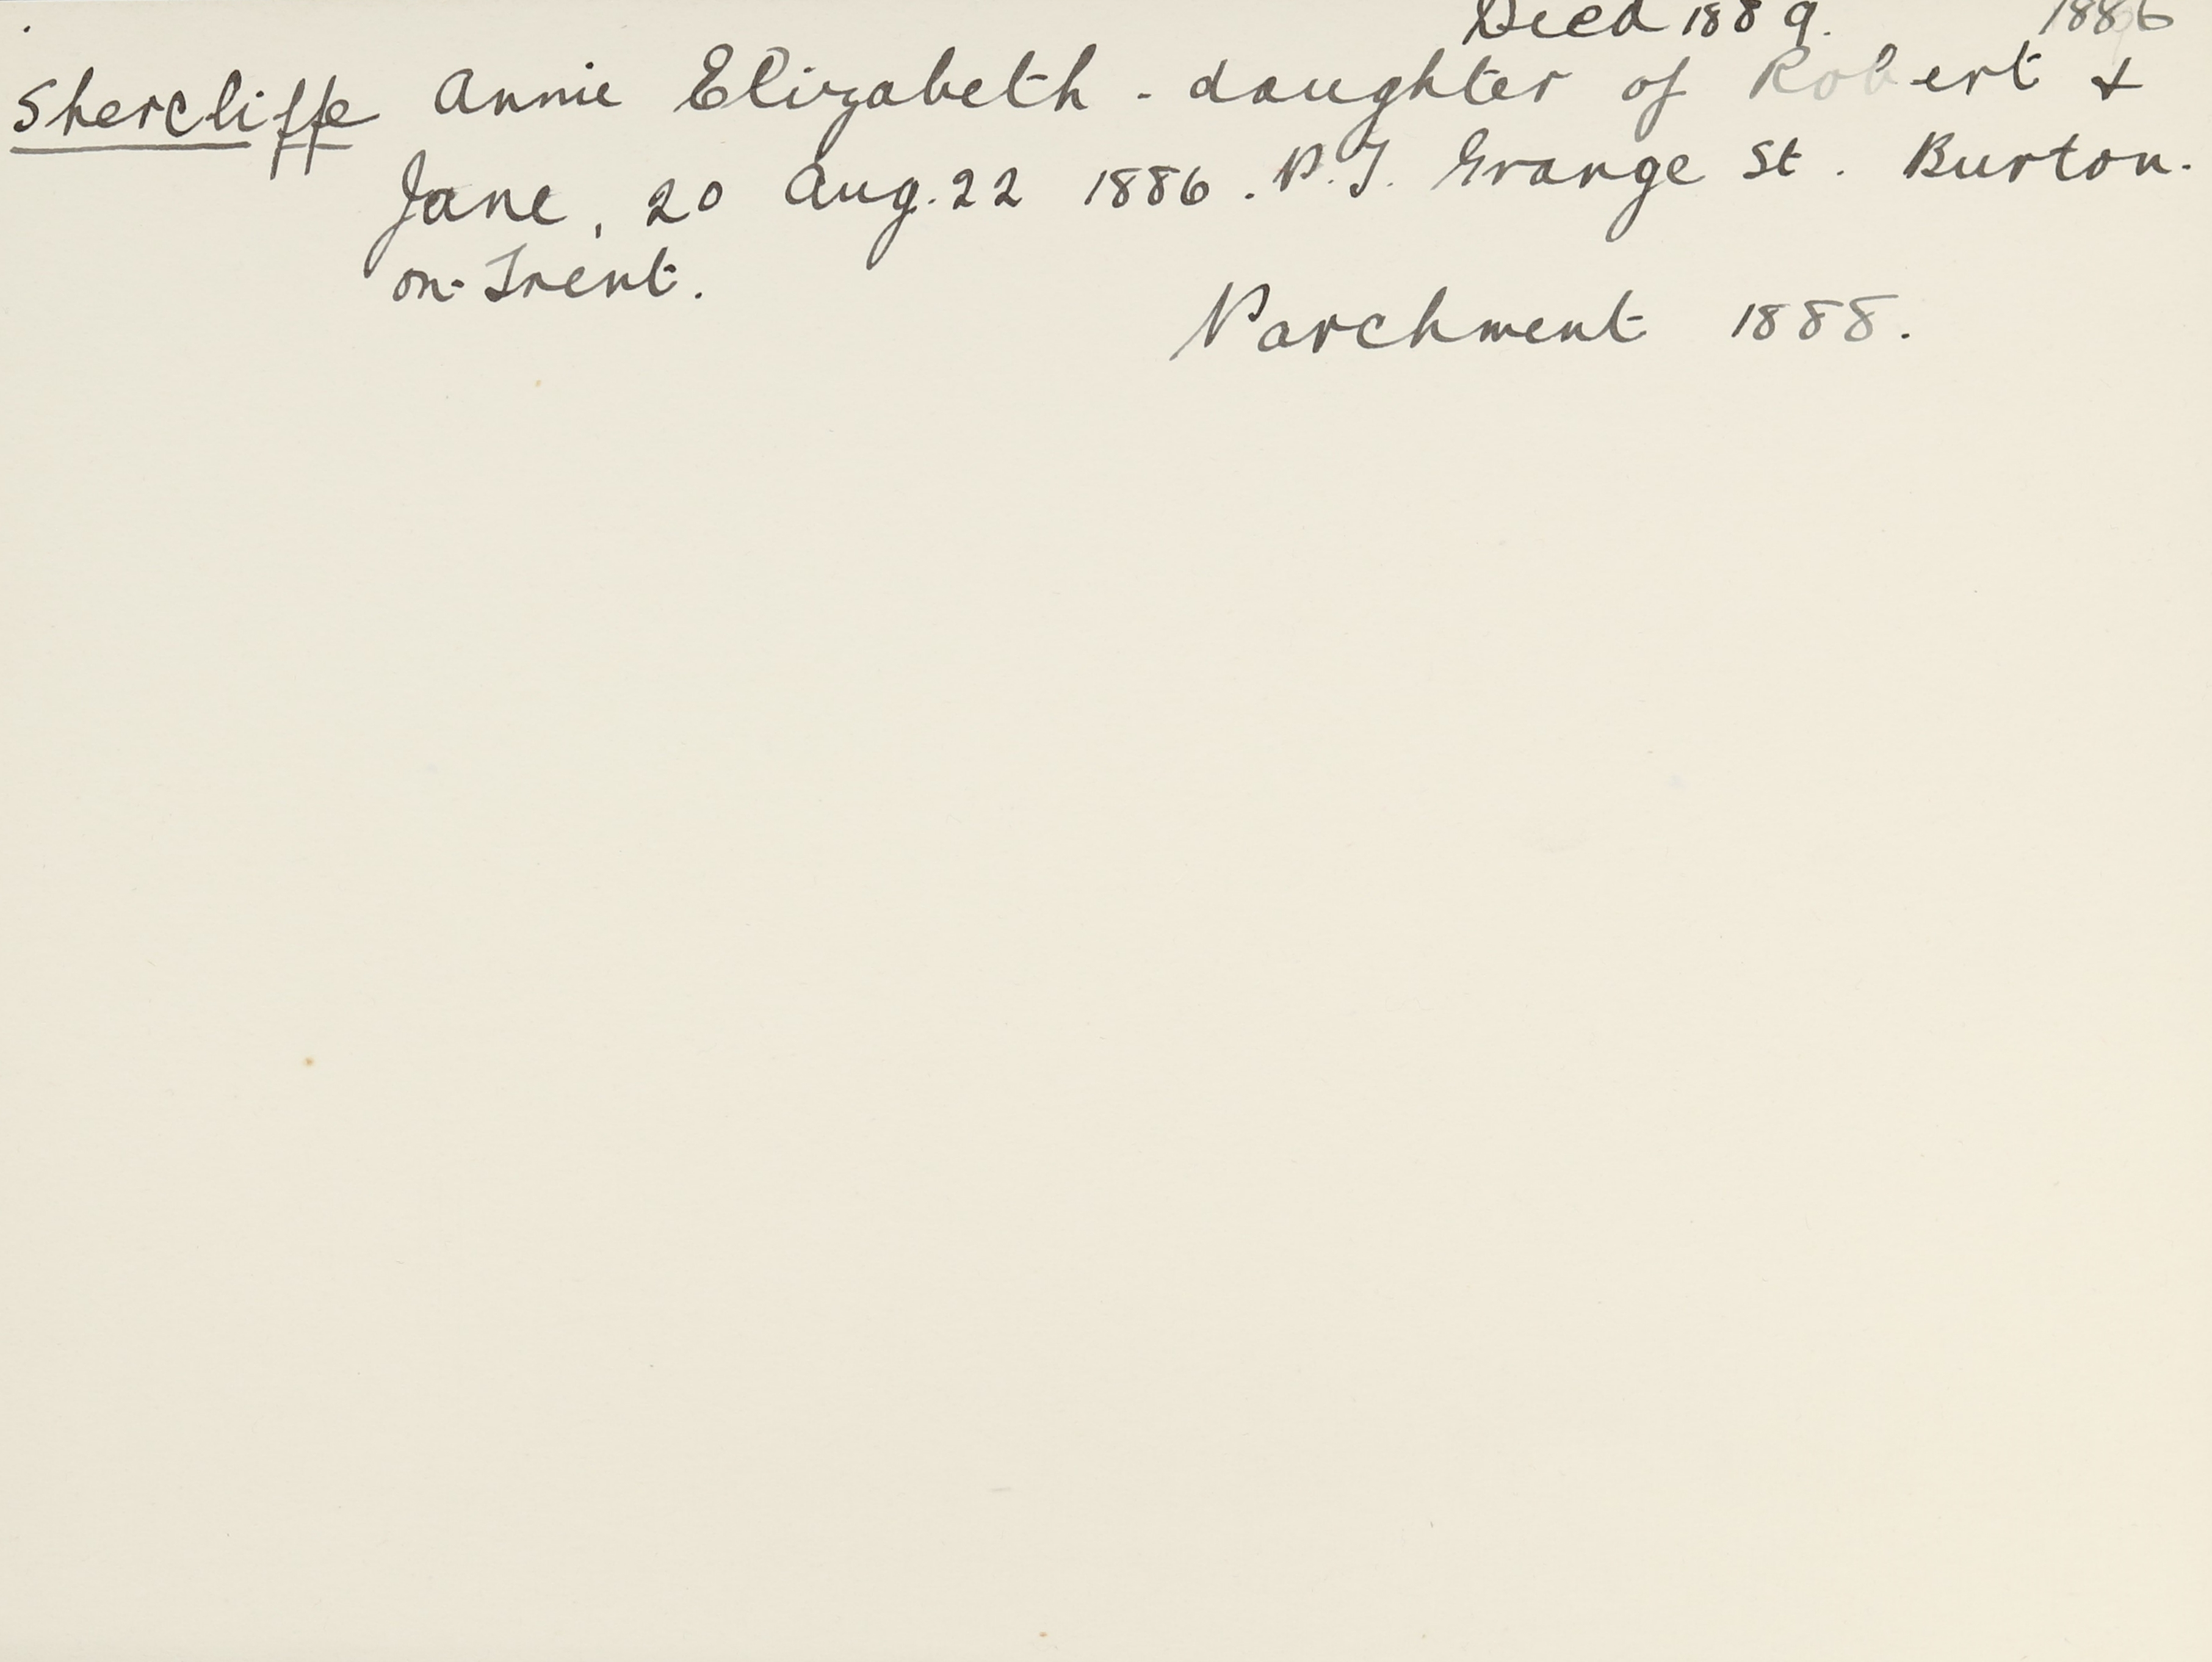 Died 1889. 1886
Shercliffe Annie Elizabeth - daughter of Robert &
Jane, 20 Aug. 22 1886. P.T. Grange St. Burton-
on-Trent.
Parchment 1888.